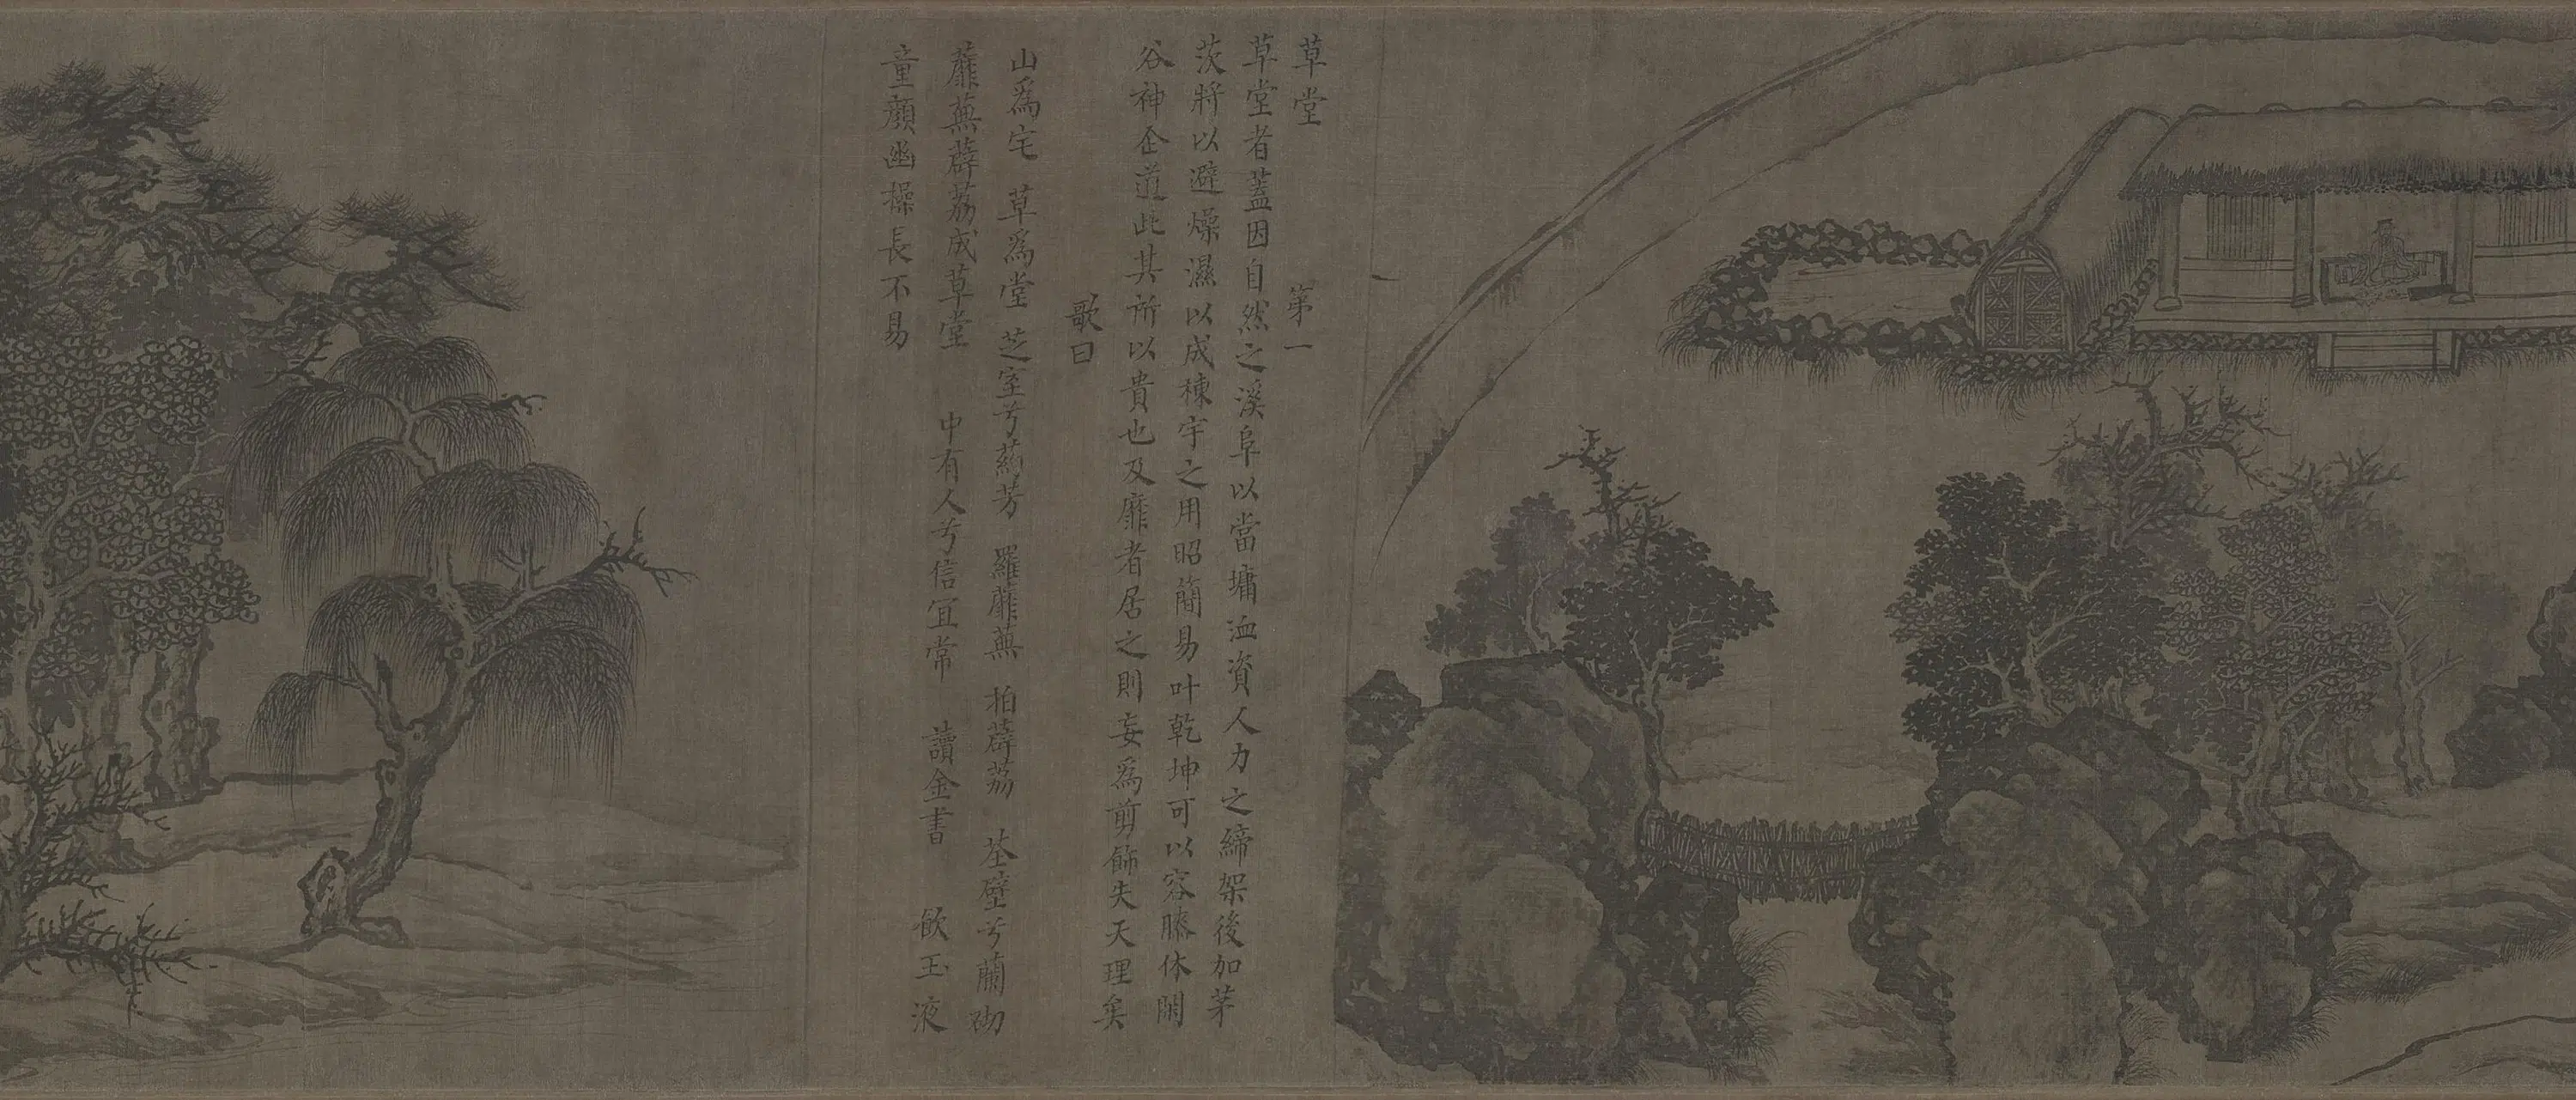 草堂 第一
草堂者蓋因自然之溪阜以當墉洫資人力之締架後加茅
茨將以避燥濕以成棟宇之用昭簡易叶乾坤可以容膝休閑
谷神企道此其所以貴也及靡者居之則妄為剪飾失天理矣
歌曰
山為宅 草為堂 芝室兮葯芳 羅蘼蕪 拍薜荔 荃壁兮蘭砌
蘼蕪薜荔成草堂 中有人兮信宜常 讀金書 飲玉液
童顏幽操長不易